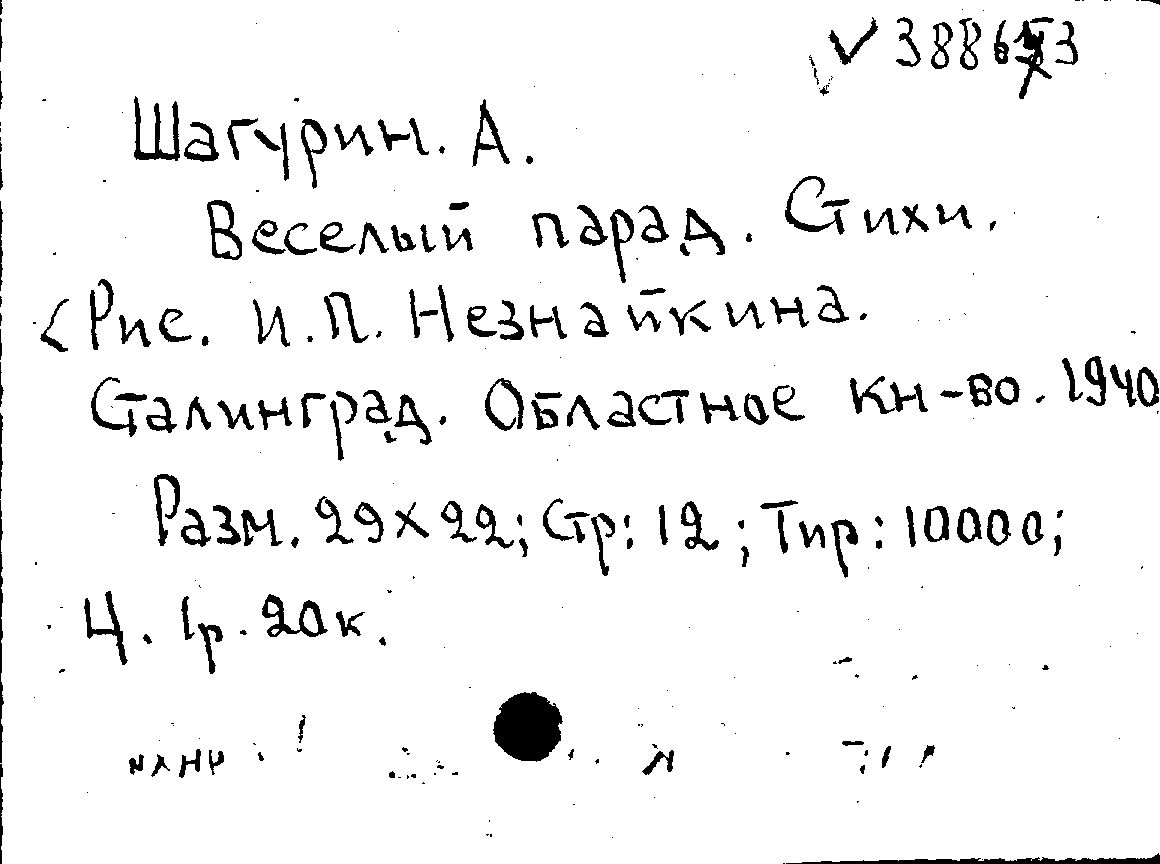 Шагурин. А.
Веселый парад. Стихи.
<Рис. И.П. Незнайкина.
Сталинград. Областное кн-во. 1940
Разм. 29х22; Стр: 12; Тир: 10000;
Ц. 1р. 20к.